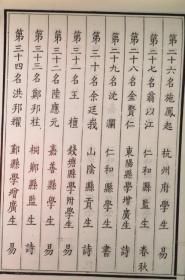 第二十六名施鳳起　杭州府學生　易
第二十七名翁以江　仁和縣監生　春秋
第二十八名金賢仁　東陽縣學增廣生　詩
第二十九名沈瀾　仁和縣學生　書
第三十名余廷我　山陰縣貢生　詩
第三十一名王檀　錢塘縣學附學生　易
第三十二名陸應元　嘉善縣學生　易
第三十三名鄭邦柱　桐鄉縣監生　詩
第三十四名洪邦耀　鄞縣學增廣生　易